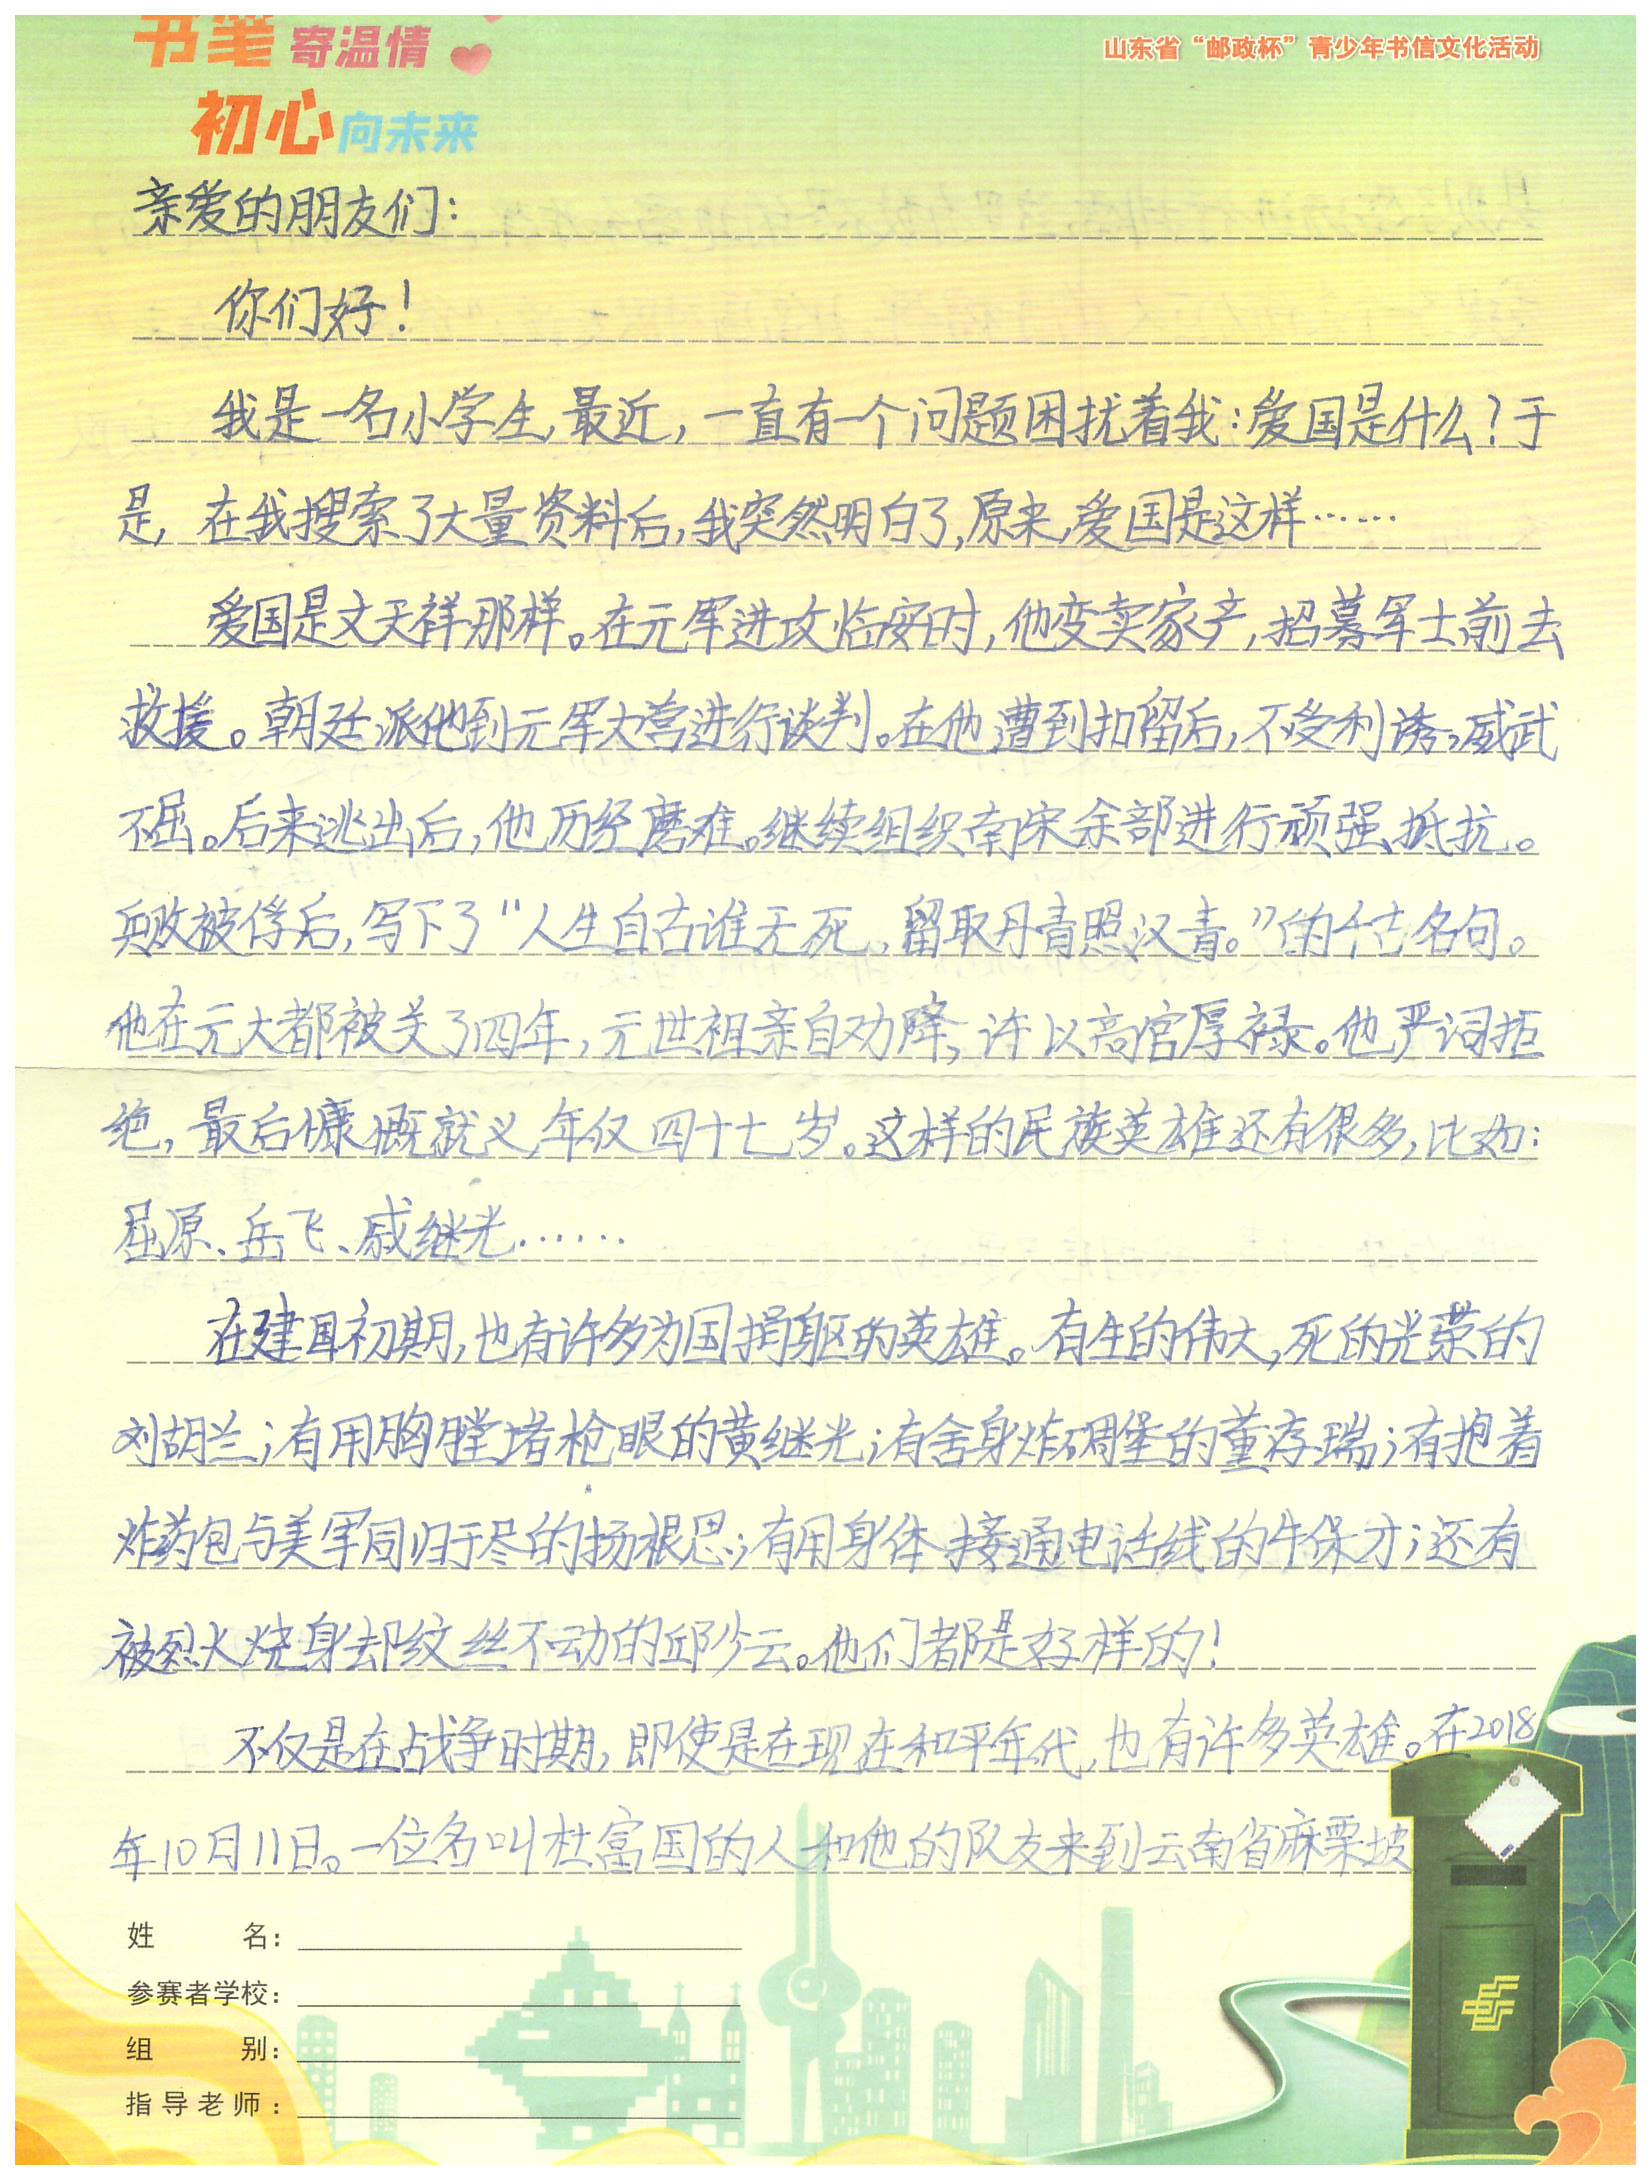 书笔 寄温情
山东省“邮政杯”青少年书信文化活动
初心向未来
亲爱的朋友们：
你们好！
我是一名小学生,最近，一直有一个问题困扰着我：爱国是什么？于
是，在我搜索了大量资料后，我突然明白了，原来，爱国是这样……
爱国是文天祥那样。在元军进攻临安时，他变卖家产，招募军士前去
救援。朝廷派他到元军大营进行谈判。在他遭到扣留后，不受利诱，威武
不屈。后来逃出后，他历经磨难。继续组织南宋余部进行顽强抵抗。
兵败被俘后，写下了“人生自古谁无死，留取丹青照汉青。”的千古名句。
他在元大都被关了四年，元世祖亲自劝降，许以高官厚禄。他严词拒
绝，最后慷慨就义，年仅四十七岁。这样的民族英雄还有很多，比如：
屈原、岳飞、戚继光……
在建国初期，也有许多为国捐躯的英雄。有生的伟大，死的光荣的
刘胡兰；有用胸膛堵枪眼的黄继光；有舍身炸碉堡的董存瑞；有抱着
炸药包与美军同归于尽的扬根思；有用身体接通电话线的牛保才；还有
被烈火烧身却纹丝不动的邱少云。他们都是好样的！
不仅是在战争时期，即使是在现在和平年代，也有许多英雄。在2018
年10月11日。一位名叫杜富国的人和他的队友来到云南省麻栗坡
姓名：
参赛者学校：
组别：
指导老师：